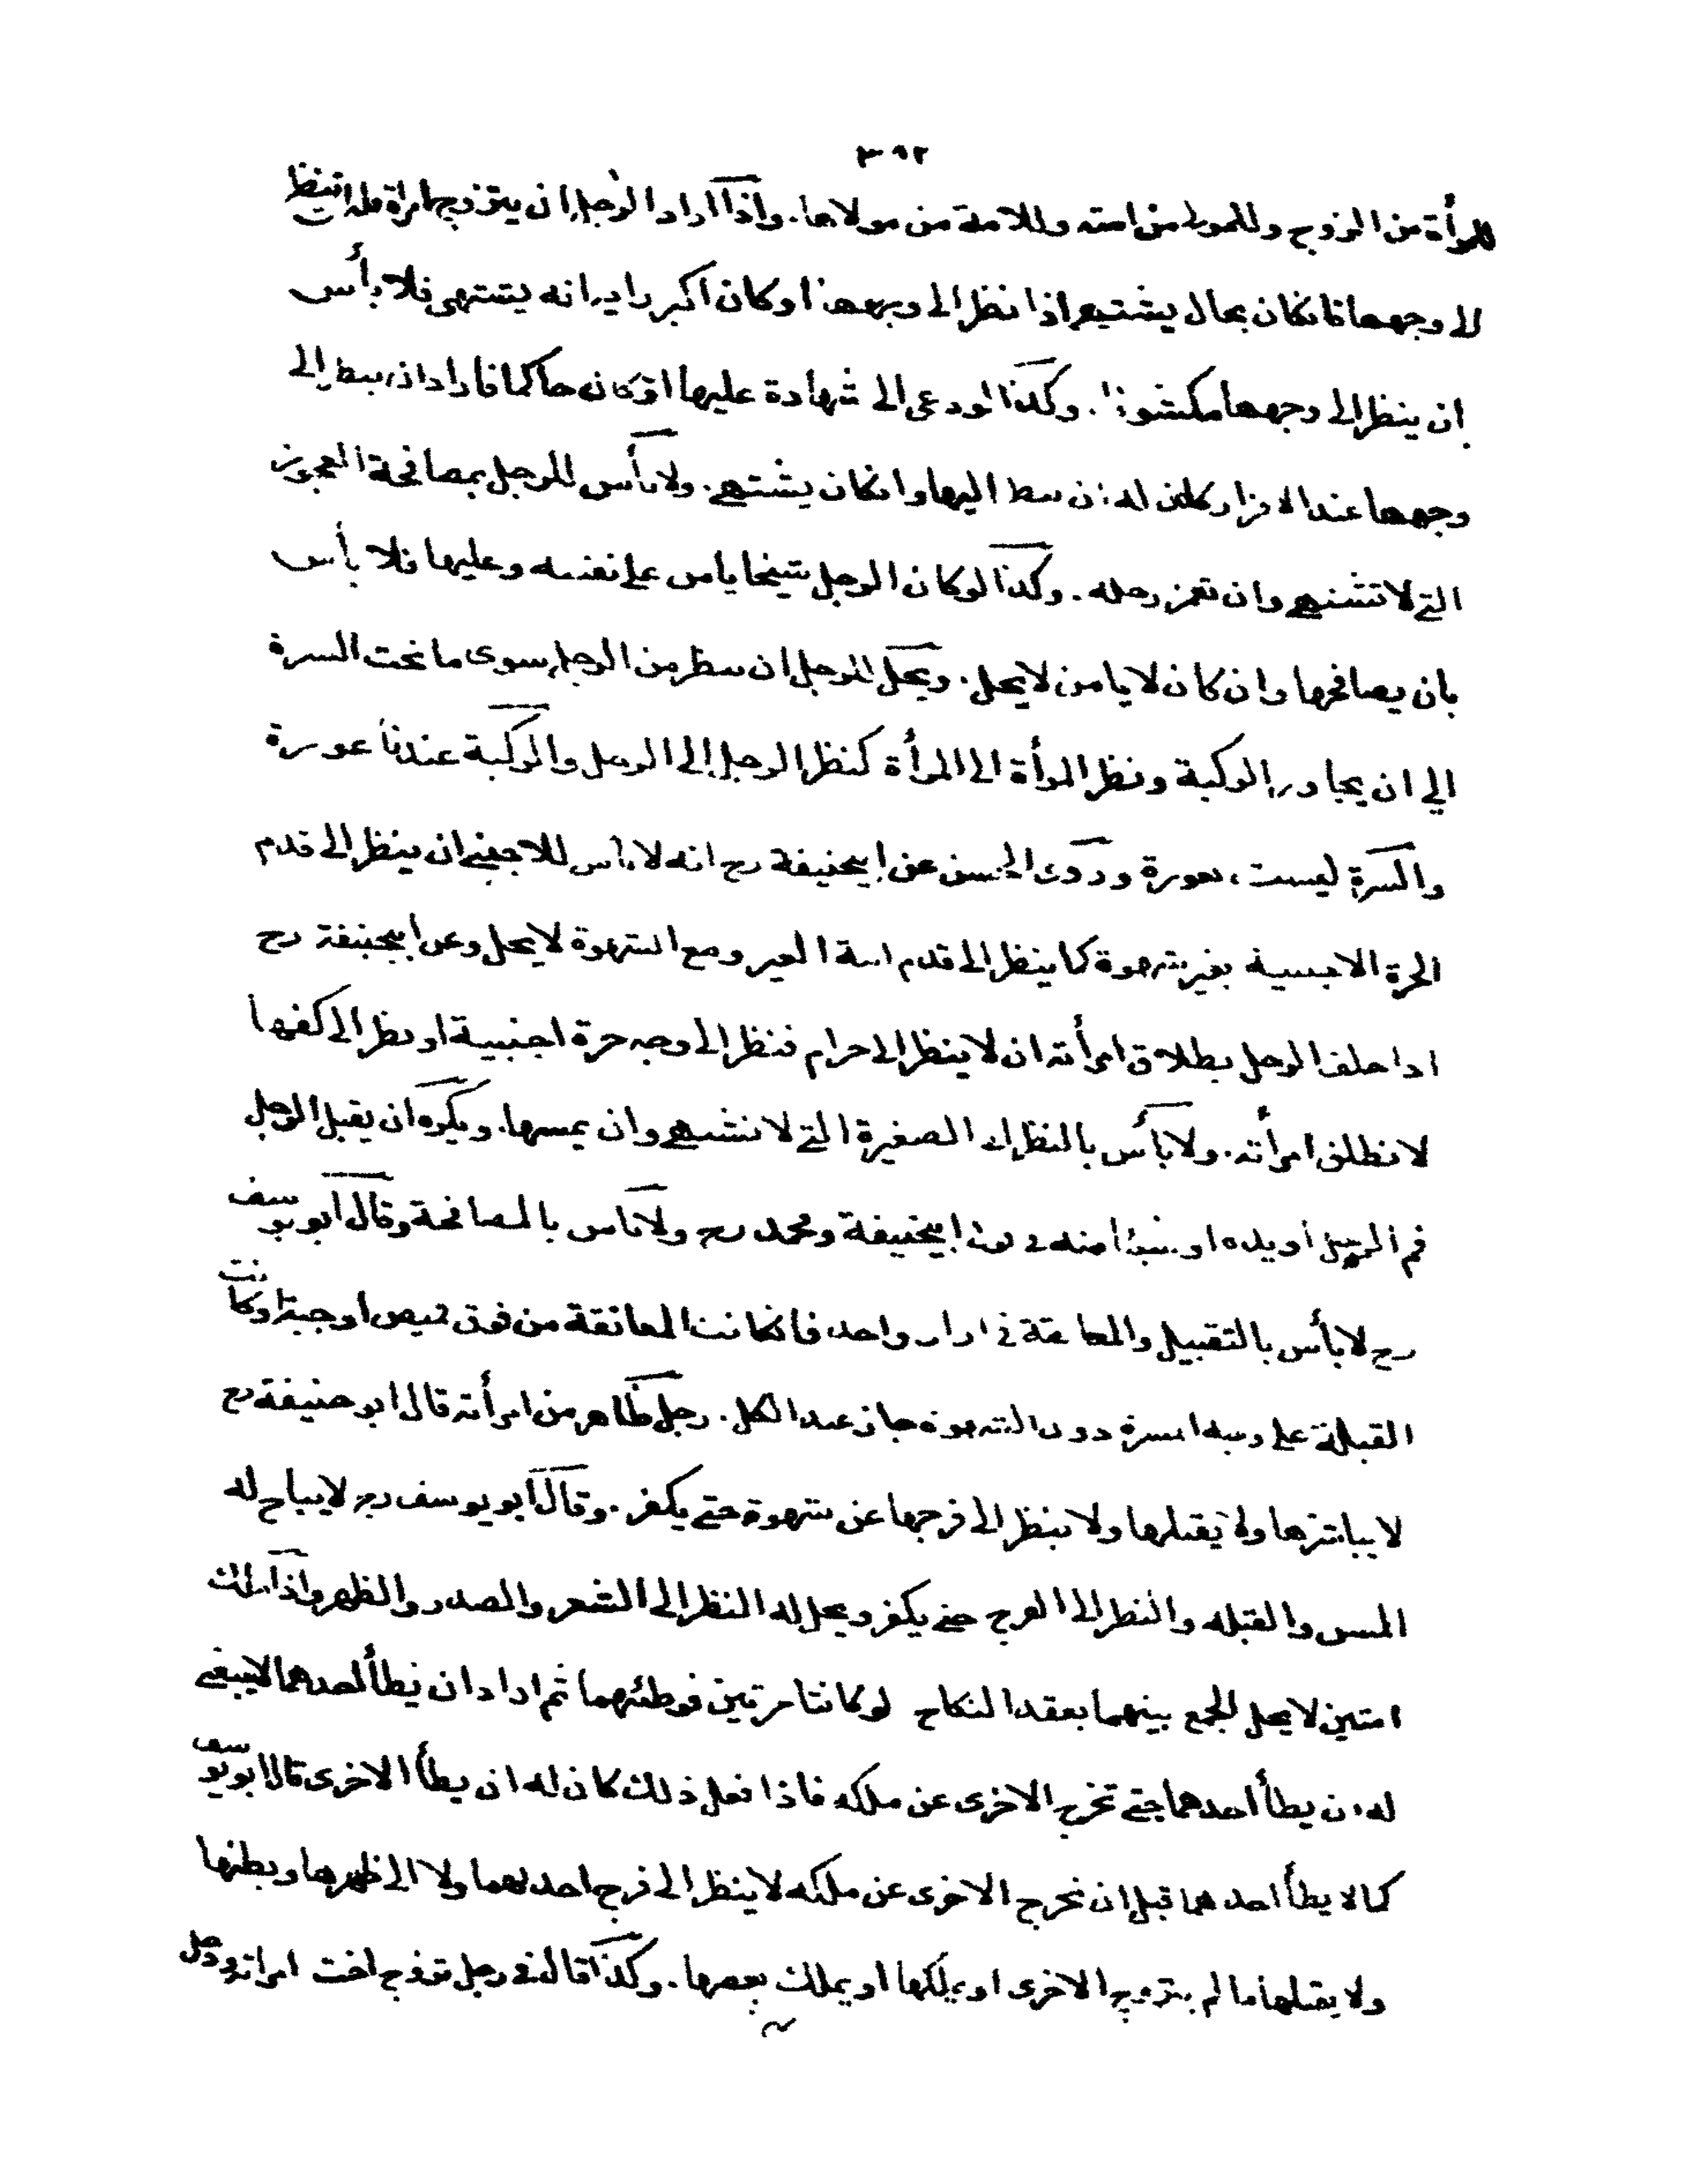 ٣٩٢
للمرأة من الزوج وللمولى من امته وللامة من مولاها. واذا اراد الرجل ان يتزوج امرأة فله ان ينظر
الى وجهها فانكان بحال يشتهي اذا نظر الى وجهها او كان اكبر رايه انه يشتهى فلا بأس
ان ينظر الى وجهها مكشوفا. وكذا لو دعى الى شهادة عليها او كان حاكما فاراد ان ينظر الى
وجهها عند الاقرار كان له ان ينظر اليها وانكان يشتهي. ولا بأس للرجل بمصافحة العجوز
التي لا تشتهي وان تغمز رجله. وكذا لو كان الرجل شيخا يامن على نفسه وعليها فلا بأس
بان يصافحها وان كان لا يامن لا يحل. ويحل للرجل ان ينظر من الرجل سوى ما تحت السرة
الى ان يجاوز الركبة ونظر المرأة الى المرأة كنظر الرجل الى الرجل والركبة عندنا عورة
والسرة ليست بعورة وروى الحسن عن ابيحنيفة رح انه لا بأس للاجنبي ان ينظر الى قدم
الحرة الاجنبية بغير شهوة كما ينظر الى قدم امة الغير ومع الشهوة لا يحل وعن ابيحنيفة رح
اذا حلف الرجل بطلاق امرأته ان لا ينظر الى حرام فنظر الى وجه حرة اجنبية او نظر الى كفها
لا تطلق امرأته. ولا بأس بالنظر الى الصغيرة التي لا تشتهي وان يمسها. ويكره ان يقبل الرجل
فم الرجل او يده او شيئا منه في قول ابيحنيفة ومحمد رح ولا بأس بالمصافحة وقال ابو يوسف
رح لا بأس بالتقبيل والمعانقة في ازار واحد فانكانت المعانقة من فوق قميص او جبة او كانت
القبلة على وجه المسرة دون الشهوة جاز عند الكل. رجل ظاهر من امرأته قال ابو حنيفة رح
لا يباشرها ولا يقبلها ولا ينظر الى فرجها عن شهوة حتى يكفر. وقال ابو يوسف رح لا يباح له
المس والقبلة والنظر الى الفرج حتى يكفر ويحل له النظر الى الشعر والصدر والظهر واذا ملك
امتين لا يحل الجمع بينهما بعقد النكاح لو كانتا حرتين فوطئهما ثم اراد ان يطأ احدهما لا ينبغي
له ان يطأ احدهما حتى تخرج الاخرى عن ملكه فاذا فعل ذلك كان له ان يطأ الاخرى قال ابو يوسف
كما لا يطأ احدهما قبل ان تخرج الاخرى عن ملكه لا ينظر الى فرج احدهما ولا الى ظهرها وبطنها
ولا يقبلها ما لم يتزوج الاخرى او يملكها او يملك بعضها. وكذا قال في رجل تزوج اخت امرأته ودخل